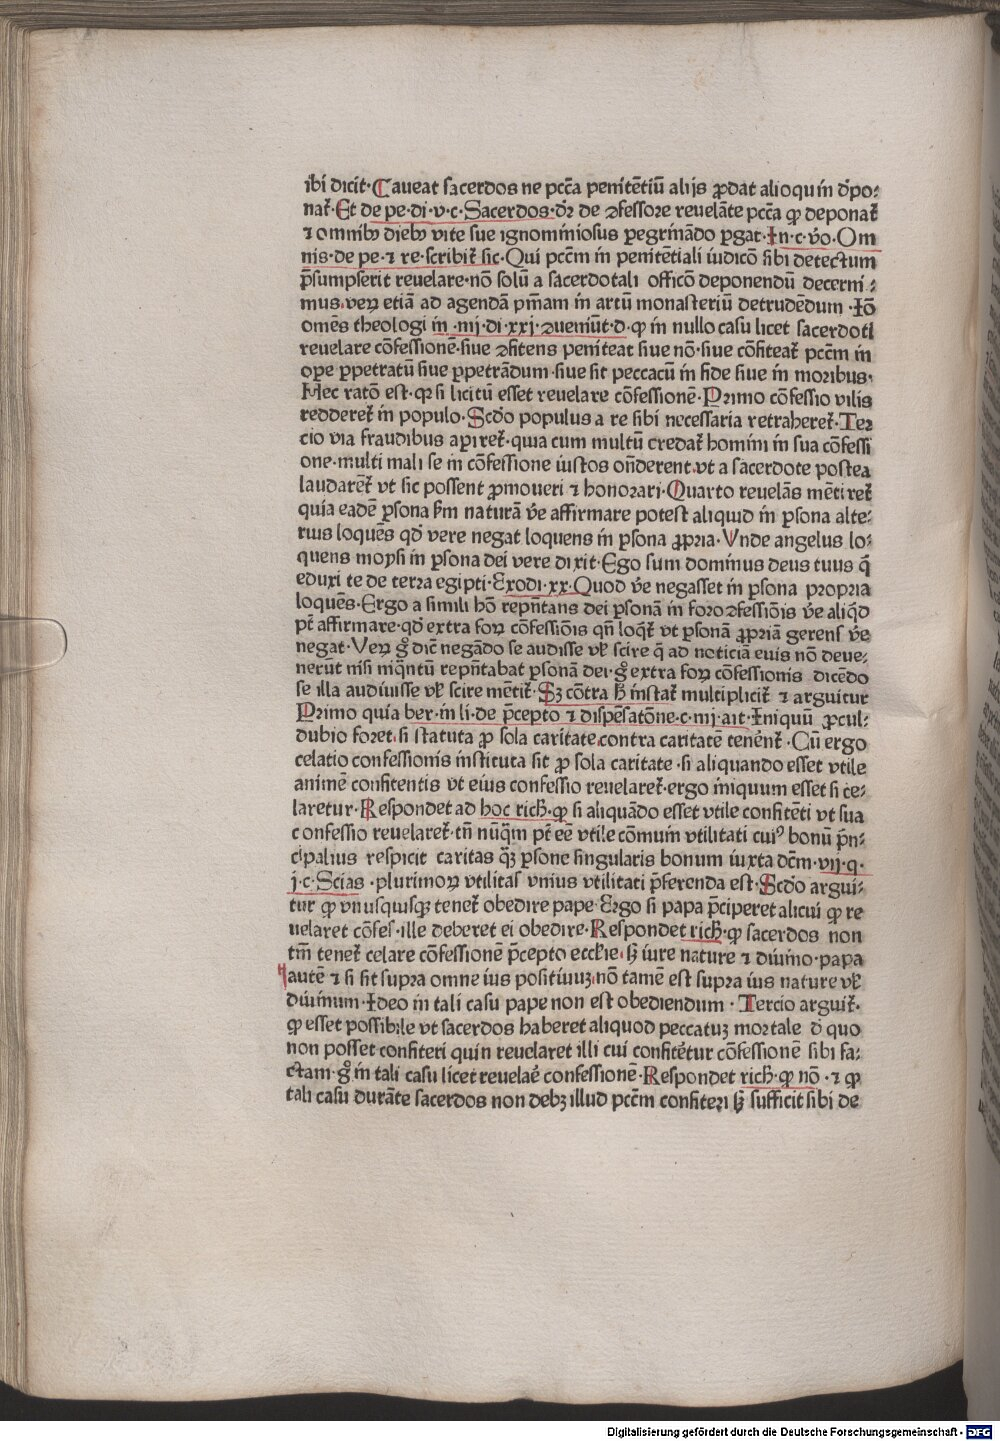 ibi dicit·Caueat sacerdos ne pcc̄a penitētiū alijs ꝓdat alioqu in d̄po⸗
nat᷑·Et de pe·di·v·c·Sacerdos·dr̄ de ꝯfessore reuelāte pcc̄a ꝙ deponat᷑
⁊ omnibꝰ diebꝰ vite sue ignominiosus ꝑegrinādo ꝑgat·In·c·v̄o·Om
nis·de pe·⁊ re·scribit᷑ sic·Qui pccm̄ in penitētiali iudicō sibi detectum
p̄sumpserit reuelare·nō solū a sacerdotali officō deponendū decerni⸗
mus·veꝝ etiā ad agendā pm̄am in artū monasteriū detrudēdum·Iō
omēs theologi in·iiij·di·xxj·ꝯueniūt·d·ꝙ in nullo casu licet sacerdoti
reuelare cōfessionē·siue ꝯfitens peniteat siue nō·siue cōfiteat᷑ pccm̄ in
oꝑe ꝑpetratū siue ꝑpetrādum·siue sit peccacū in fide siue in moribus·
Hec ratō est·qꝛ si licitū esset reuelare cōfessionē·Primo cōfessio vilis
redderet᷑ in populo·Scdo populus a re sibi necessaria retraheret᷑·Ter
cio via fraudibus aꝑiret᷑·quia cum multū credat᷑ homini in sua cōfessi
one·multi mali se in cōfessione iustos on̄derent·vt a sacerdote postea
laudarēt᷑ vt sic possent ꝓmoueri ⁊ honorari·Quarto reuelās mētiret᷑
quia eadē ꝑsona ẜm naturā v̄e affirmare potest aliquid in ꝑsona alte⸗
rius loquēs qd̄ vere negat loquens in ꝑsona ꝓpria·Vnde angelus lo⸗
quens moysi in ꝑsona dei vere dixit·Ego sum dominus deus tuus q̄
eduxi te de terra egipti·Exodi·xx·Quod v̄e negasset in ꝑsona propria
loquēs·Ergo a simili hō repn̄tans dei ꝑsonā in foro ꝯfessiōis v̄e aliq̄d
pt̄ affirmare·qd̄ extra foꝝ cōfessiōis qn̄ loq̄t᷑ vt ꝑsonā ꝓpriā gerens v̄e
negat·Veꝝ gͦ dic̄ negādo se audisse vl̄ scire q̄ ad noticiā eius nō deue⸗
nerūt nisi inq̄ntū repn̄tabat ꝑsonā dei·gͦ extra foꝝ cōfessionis dicēdo
se illa audiuisse vl̄ scire mētit᷑·Sꝫ cōtra ħ instat᷑ multiplicit᷑ ⁊ arguitur
Primo quia ber·in li·de p̄cepto ⁊ dispēsatōne·c·iiij·ait·Iniquū ꝓcul⸗
dubio foret·si statuta ꝓ sola caritate·contra caritatē tenēnt᷑·Cū ergo
celatio confessionis instituta sit ꝓ sola caritate·si aliquando esset vtile
animē confitentis vt eius confessio reuelaret᷑·ergo iniquum esset si ce⸗
laretur·Respondet ad hoc rich̄·ꝙ si aliquādo esset vtile confitēti vt sua
confessio reuelaret᷑·tn̄ nūq̄m pt̄ eē vtile cōmuni vtilitati cuiꝰ bonū p̄n⸗
cipalius respicit caritas q̄ꝫ ꝑsone singularis bonum iuxta dcm̄·vij·q·
j·c·Scias·plurimoꝝ vtilitas vnius vtilitati p̄ferenda est·Scdo argui⸗
tur ꝙ vnusquisqꝫ tenet᷑ obedire pape·Ergo si papa p̄ciperet alicui ꝙ re
uelaret cōfes·ille deberet ei obedire·Respondet rich̄·ꝙ sacerdos non
tm̄ tenet᷑ celare cōfessionē p̄cepto eccl̄ie·sꝫ iure nature ⁊ diuino·papa
autē ⁊ si sit supra omne ius positiuuꝫ·nō tamē est supra ius nature vl̄
diuinum·Ideo in tali casu pape non est obediendum·Tercio arguit᷑·
ꝙ esset possibile vt sacerdos haberet aliquod peccatuꝫ mortale d̄ quo
non posset confiteri quin reuelaret illi cui confitētur cōfessionē sibi fa⸗
ctam·gͦ in tali casu licet reuelaē confessionē·Respondet rich̄·ꝙ nō·⁊ ꝙ
tali casu durāte sacerdos non debꝫ illud pccm̄ confiteri sꝫ sufficit sibi de
Digitalisierung gefördert durch die Deutsche Forschungsgemeinschaft - DFG